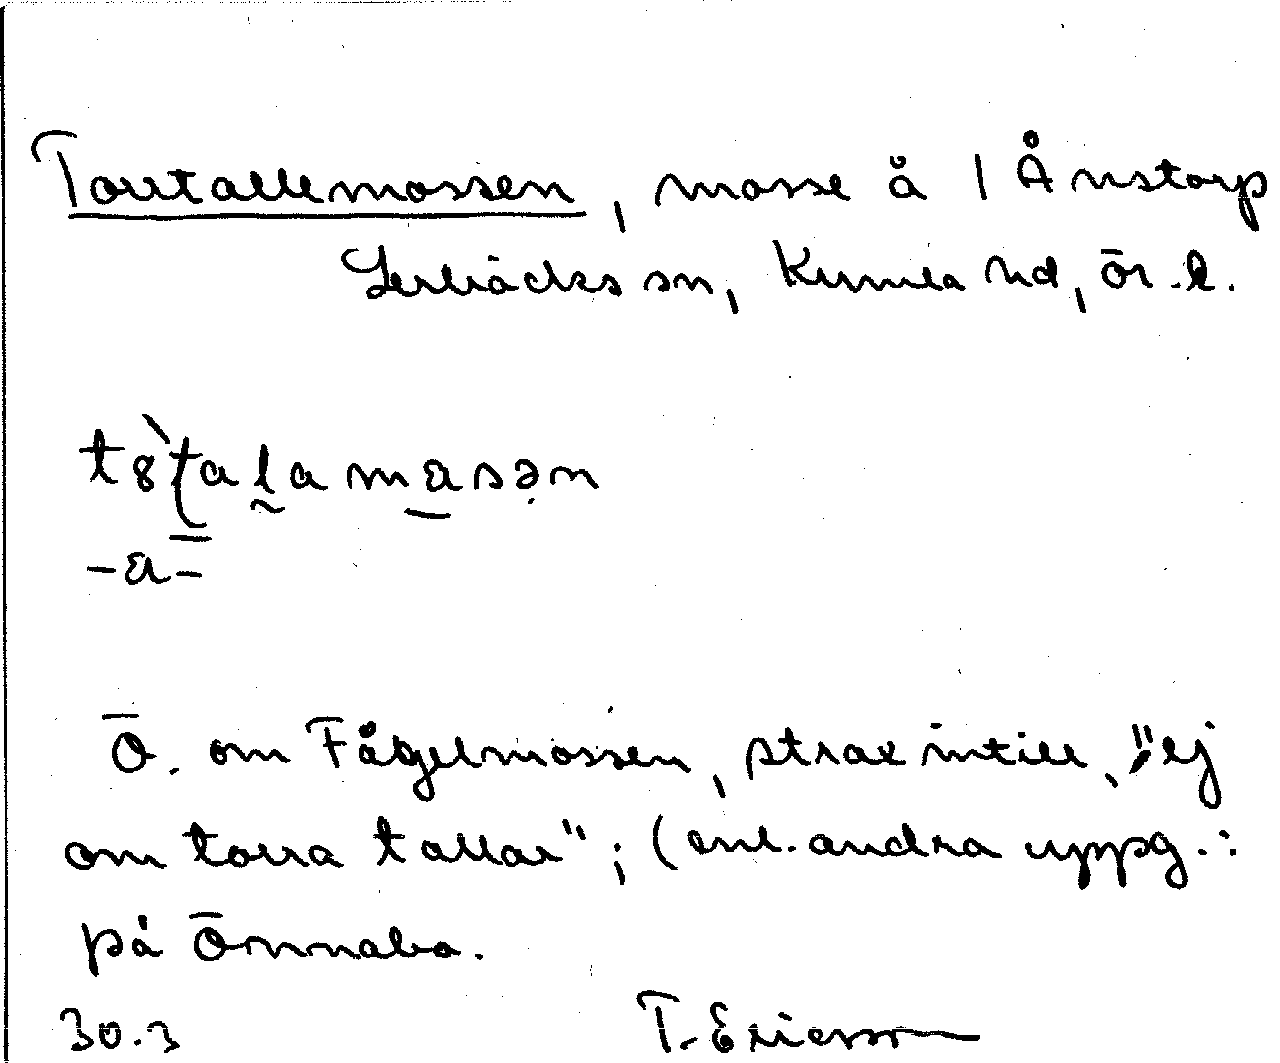 Torrtallemossen, mosse å 1 Ånstorp
Lerbäcks sn, Kumla hd, Ör. l.
-a-
Ö. om Fågelmossen, strax intill, "ej
om torra tallar"; (enl. andra uppg.:
på Önnabo.
30.3 T. Ericsson